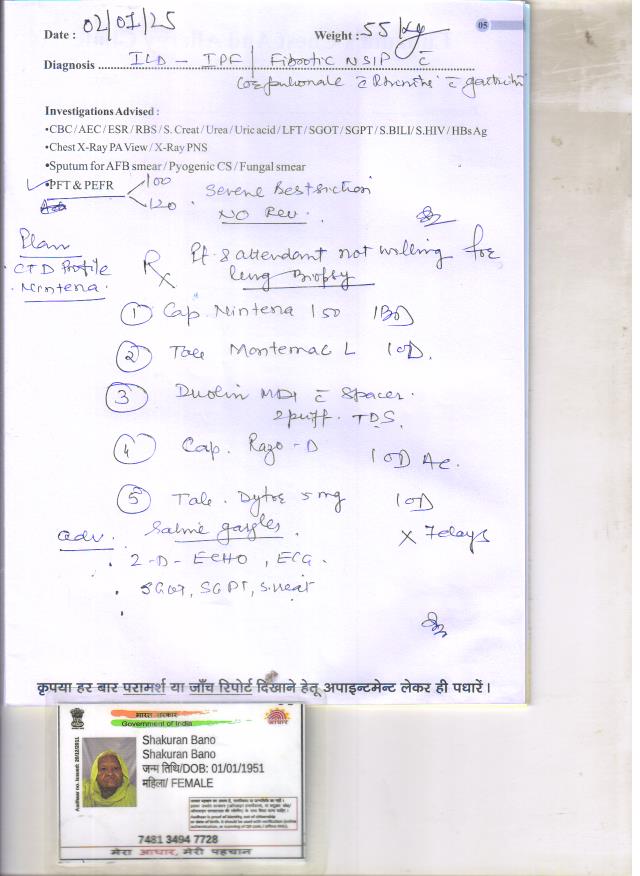 05
Date : 02/01/25 Weight : 55 kg
Diagnosis ILD - IPF / Fibrotic NSIP c̄
Corpulmonale c̄ Rhinitis c̄ gastritis
Investigations Advised :
•CBC / AEC / ESR / RBS / S. Creat / Urea / Uric acid / LFT / SGOT / SGPT / S.BILI / S.HIV / HBs Ag
•Chest X-Ray PA View / X-Ray PNS
•Sputum for AFB smear / Pyogenic CS / Fungal smear
•PFT & PEFR 100 Severe Restriction
120 NO Rev.
Plan
CTD Profile
Nintena
Rx Pt & attendant not willing for
lung Biopsy
1 Cap. Nintena 150 1BD
2 Tab Montemac L 1OD.
3 Duolin MDI c̄ Spacer.
2puff. TDS.
4 Cap. Razo-D 1OD AC.
5 Tab. Dytor 5mg 1OD
x 7days
adv. Saline gargles.
. 2-D-ECHO, ECG.
. SGOT, SGPT, S.creat
कृपया हर बार परामर्श या जाँच रिपोर्ट दिखाने हेतु अपाइन्टमेन्ट लेकर ही पधारें।
भारत सरकार
Government of India
Shakuran Bano
Shakuran Bano
जन्म तिथि/DOB: 01/01/1951
महिला/ FEMALE
7481 3494 7728
मेरा आधार, मेरी पहचान